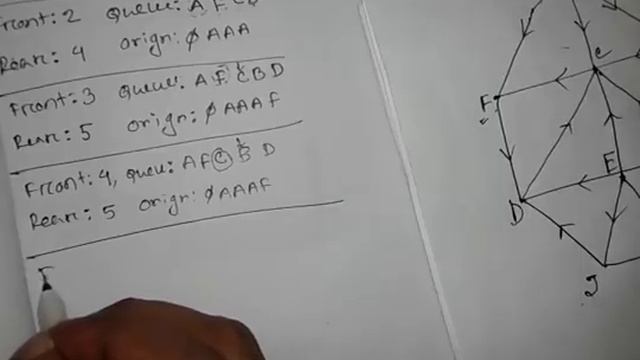 Front: 2 Queue: A F C B
Rear: 4 orign: φ A A A
Front: 3 Queue: A F C B D
Rear: 5 orign: φ A A A F
Front: 4, Queue: A F C B D
Rear: 5 orign: φ A A A F
F
C
F
E
D
J